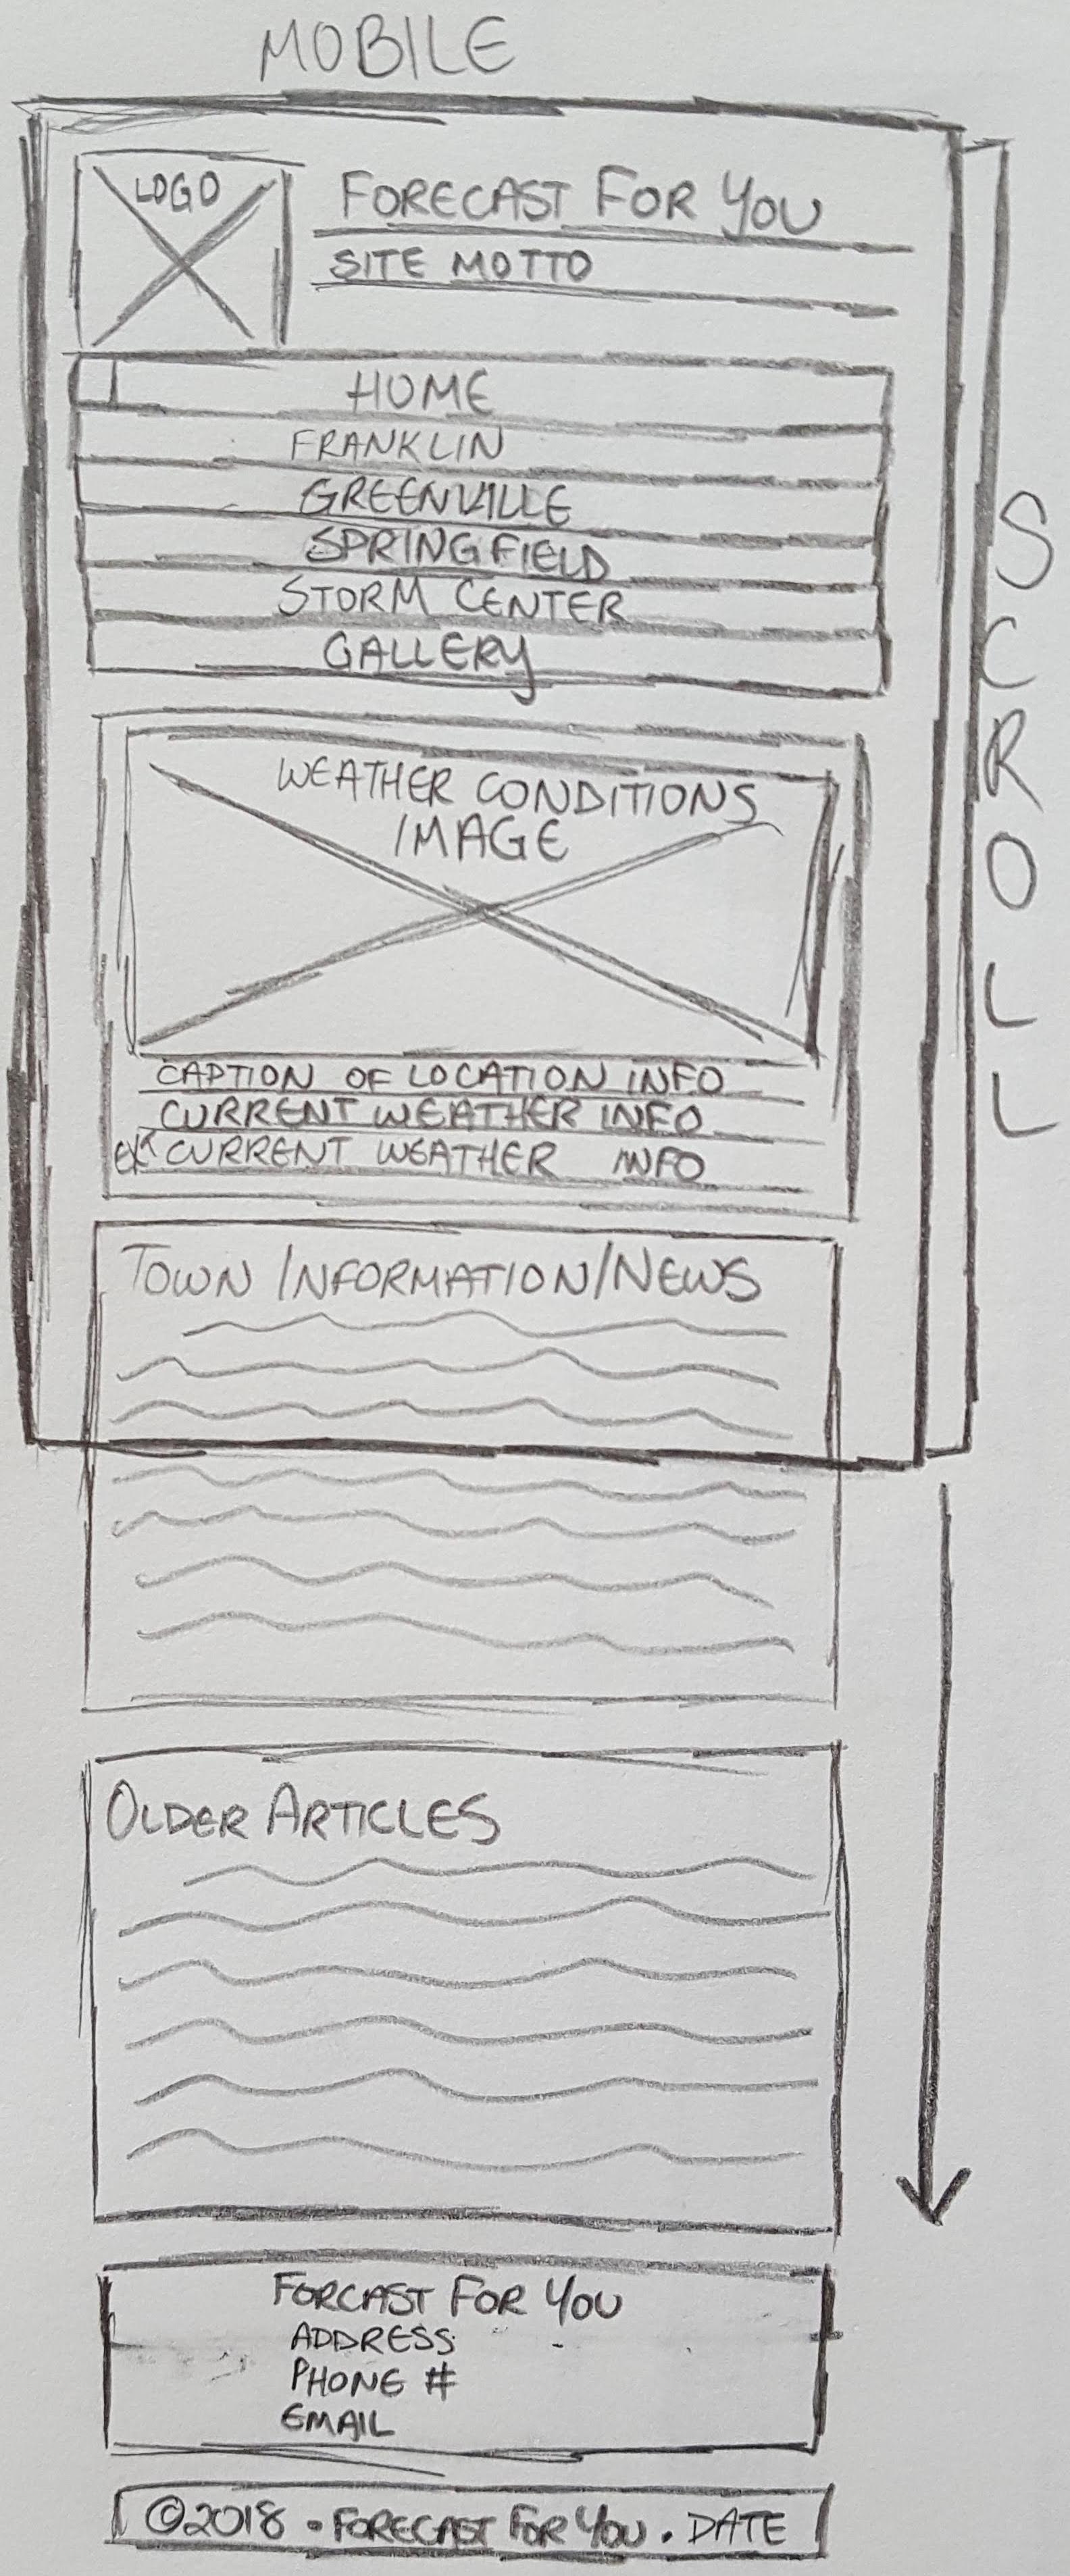 MOBILE
LOGO
FORECAST FOR YOU
SITE MOTTO
HOME
FRANKLIN
GREENVILLE
SPRINGFIELD
STORM CENTER
GALLERY
WEATHER CONDITIONS
IMAGE
CAPTION OF LOCATION INFO
CURRENT WEATHER INFO
CURRENT WEATHER INFO
TOWN INFORMATION/NEWS
SCROLL
OLDER ARTICLES
FORCAST FOR YOU
ADDRESS
PHONE #
EMAIL
©2018 • FORECAST FOR YOU • DATE